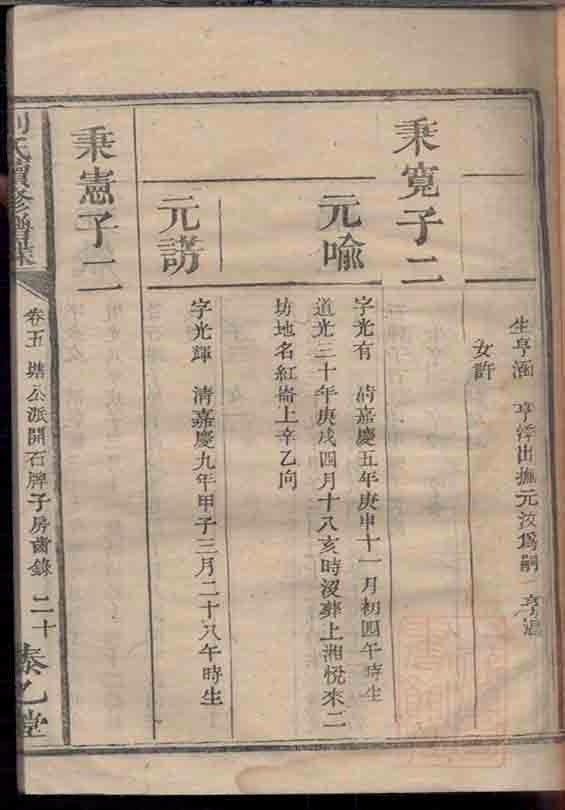 生亨涵 亨
出撫元汝爲嗣一
女許
秉寬子二
元喻
字光有 清嘉慶五年庚申十一月初四午時生
道光三十年庚戌四月十八亥時沒葬上湘悅來二
坊地名紅崙上辛乙向
元謗
字光輝 清嘉慶九年甲子三月二十八午時生
秉憲子二
氏續修譜
卷五 塘公派開石牌子房齒錄 二十
泰乙堂